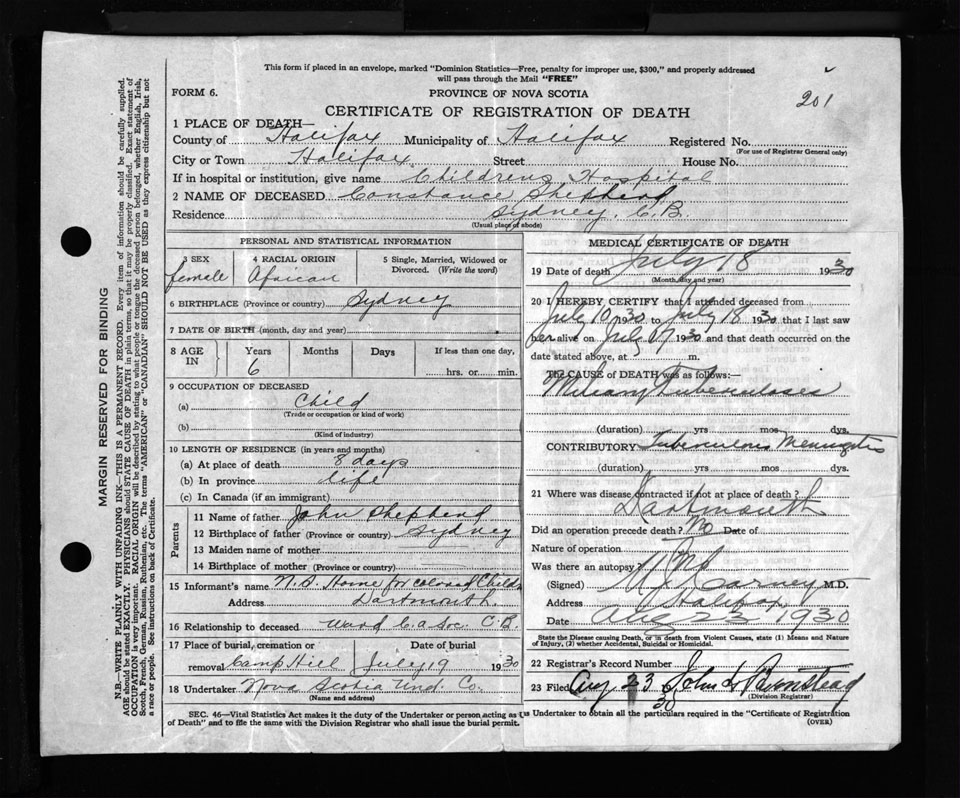 This form if placed in an envelope, marked "Dominion Statistics—Free, penalty for improper use, $300," and properly addressed
will pass through the Mail "FREE"
FORM 6.
PROVINCE OF NOVA SCOTIA
201
CERTIFICATE OF REGISTRATION OF DEATH
1 PLACE OF DEATH—
County of Halifax Municipality of Halifax Registered No.
(For use of Registrar General only)
City or Town Halifax Street House No.
If in hospital or institution, give name Childrens Hospital
2 NAME OF DECEASED Constance Shepherd
Residence Sydney, C.B.
(Usual place of abode)
PERSONAL AND STATISTICAL INFORMATION
3 SEX
female
4 RACIAL ORIGIN
African
5 Single, Married, Widowed or
Divorced. (Write the word)
6 BIRTHPLACE (Province or country) Sydney
7 DATE OF BIRTH (month, day and year)
8 AGE
IN
Years
6
Months
Days
If less than one day,
hrs. or min.
9 OCCUPATION OF DECEASED
(a) Child
(Trade or occupation or kind of work)
(b)
(Kind of industry)
10 LENGTH OF RESIDENCE (in years and months)
(a) At place of death 8 days
(b) In province life
(c) In Canada (if an immigrant)
Parents
11 Name of father John Shepherd
12 Birthplace of father (Province or country) Sydney
13 Maiden name of mother
14 Birthplace of mother (Province or country)
15 Informant's name N.S. Home for Colored Child
Address Dartmouth
16 Relationship to deceased Ward C a Soc. C.B.
17 Place of burial, cremation or Date of burial
removal Camp Hill July 19 1930
18 Undertaker Nova Scotia Und. Co.
(Name and address)
MEDICAL CERTIFICATE OF DEATH
19 Date of death July 18 1930
(Month, day and year)
20 I HEREBY CERTIFY that I attended deceased from
July 10 1930 to July 18 1930 that I last saw
her alive on July 17 1930 and that death occurred on the
date stated above, at m.
THE CAUSE OF DEATH was as follows:—
Miliary Tuberculosis
(duration) yrs mos dys.
CONTRIBUTORY Tuberculous Meningitis
(duration) yrs mos dys.
21 Where was disease contracted if not at place of death?
Dartmouth
Did an operation precede death? No Date of
Nature of operation
Was there an autopsy? No
(Signed) Carney M.D.
Address Halifax
Date Aug 23 1930
State the Disease causing Death, or in death from Violent Causes, state (1) Means and Nature
of Injury, (2) whether Accidental, Suicidal or Homicidal.
22 Registrar's Record Number
23 Filed Aug 23 30 John
(Division Registrar)
SEC. 46—Vital Statistics Act makes it the duty of the Undertaker or person acting as Undertaker to obtain all the particulars required in the "Certificate of Registration
of Death" and to file the same with the Division Registrar who shall issue the burial permit.
(OVER)
MARGIN RESERVED FOR BINDING
N.B.—WRITE PLAINLY WITH UNFADING INK—THIS IS A PERMANENT RECORD. Every item of information should be carefully supplied.
AGE should be stated EXACTLY. PHYSICIANS should STATE CAUSE OF DEATH in plain terms, so that it may be properly classified. Exact statement of
OCCUPATION is very important. RACIAL ORIGIN will be described by stating to what people or tongue the deceased person belonged, whether English, Irish,
Scotch, French, German, Russian, Ruthenian, etc. The terms "AMERICAN" or "CANADIAN" SHOULD NOT BE USED as they express citizenship but not
a race or people. See instructions on back of Certificate.